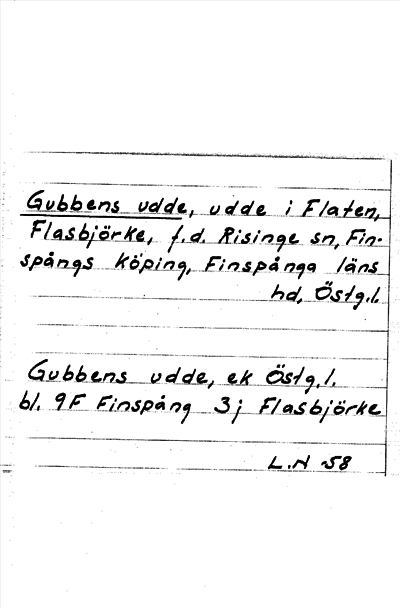 Gubbens udde, udde i Flaten,
Flasbjörke, f.d. Risinge sn, Fin-
spångs köping, Finspånga läns
hd, Östg.l.
Gubbens udde, ek Östg.l.
bl. 9F Finspång 3j Flasbjörke
L.N -58